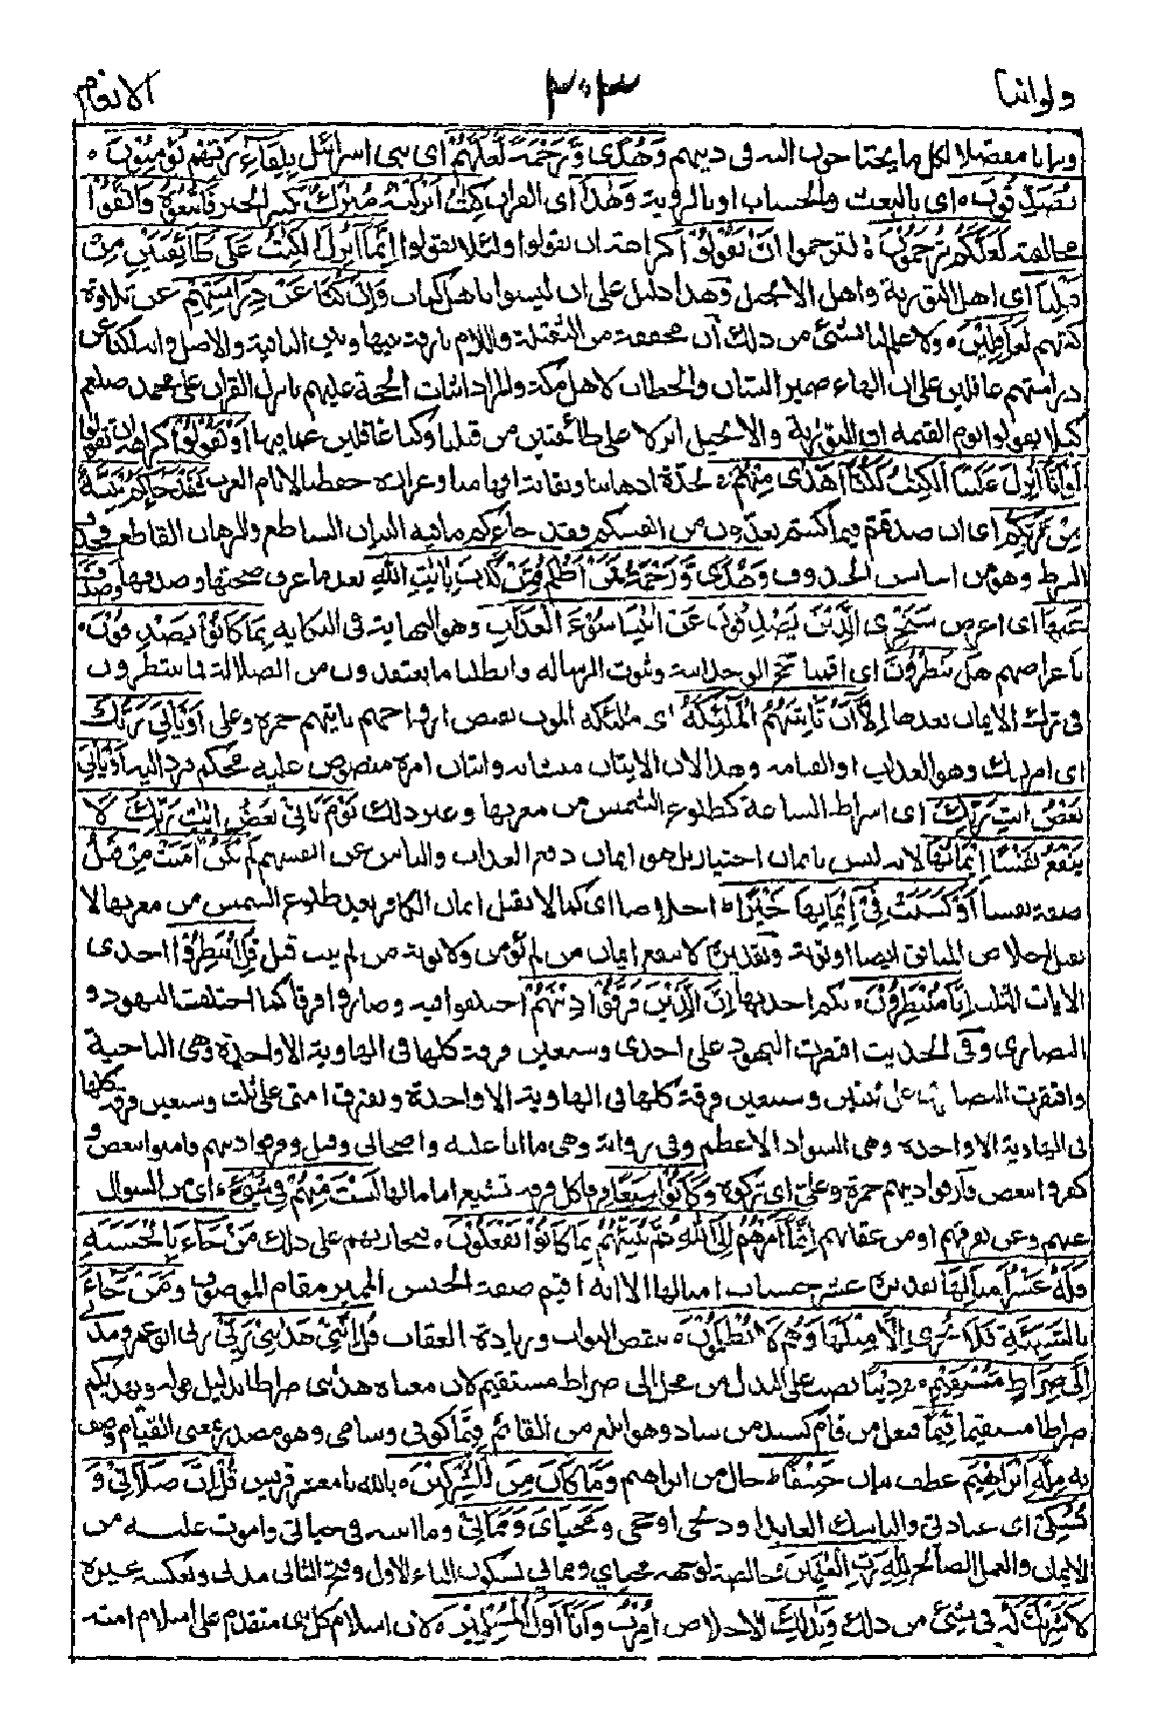 ولواننا ٣٠٣ الانعام
مفصلا لكل ما يحتاجون اليه فى دينهم وَهُدًى وَّرَحْمَةً لَّعَلَّهُمْ اى بنى اسرائيل بِلِقَآءِ رَبِّهِمْ يُؤْمِنُوْنَ ٥
يصدقون ٥ اى بالبعث والحساب او بالرؤية وَهٰذَا اى القران كِتٰبٌ اَنْزَلْنٰهُ مُبٰرَكٌ كثير الخير فَاتَّبِعُوْهُ وَاتَّقُوْا
مخالفته لَعَلَّكُمْ تُرْحَمُوْنَ ٥ لترحموا اَنْ تَقُوْلُوْٓا كراهة ان تقولوا او لئلا تقولوا اِنَّمَآ اُنْزِلَ الْكِتٰبُ عَلٰى طَآئِفَتَيْنِ مِنْ
قَبْلِنَا اى اهل التورية واهل الانجيل وهذا دليل على ان ليسوا باهل كتاب وَاِنْ كُنَّا عَنْ دِرَاسَتِهِمْ عن تلاوة
كتبهم لَغٰفِلِيْنَ ٥ ولا علم لنا بشئ من ذلك ان مخففة من الثقيلة واللام فارقة بينها وبين النافية والاصل وانه كنا عن
دراستهم غافلين على ان الهاء ضمير الشان والخطاب لاهل مكة والمراد اثبات الحجة عليهم بانزال القران على محمد صلعم
كيلا يقولوا يوم القيمة ان التورية والانجيل انزلا على طائفتين من قبلنا وكنا غافلين عما فيها اَوْ تَقُوْلُوْا كراهة ان تقولوا
لَوْ اَنَّآ اُنْزِلَ عَلَيْنَا الْكِتٰبُ لَكُنَّآ اَهْدٰى مِنْهُمْ لحدة اذهاننا وثقابة افهامنا وغزارة حفظنا لايام العرب فَقَدْ جَآءَكُمْ بَيِّنَةٌ
مِّنْ رَّبِّكُمْ اى ان صدقتم فيما كنتم تعدون من انفسكم فقد جاءكم ما فيه البيان الساطع والبرهان القاطع فحذف
الشرط وهو من احاسن الحذوف وَهُدًى وَّرَحْمَةٌ فَمَنْ اَظْلَمُ مِمَّنْ كَذَّبَ بِاٰيٰتِ اللّٰهِ بعد ما عرف صحتها وصدقها وَصَدَفَ
عَنْهَا اى اعرض سَنَجْزِى الَّذِيْنَ يَصْدِفُوْنَ عَنْ اٰيٰتِنَا سُوْٓءَ الْعَذَابِ وهو النهاية فى النكاية بِمَا كَانُوْا يَصْدِفُوْنَ ٥
باعراضهم هَلْ يَنْظُرُوْنَ اى اقمنا حجج الوحدانية وثبوت الرسالة وابطلنا ما يعتقدون من الضلالة فما ينتظرون
فى ترك الايمان بعدها اِلَّآ اَنْ تَاْتِيَهُمُ الْمَلٰٓئِكَةُ اى ملئكة الموت لقبض ارواحهم ياتيهم حمزة وعلى اَوْ يَاْتِىَ رَبُّكَ
اى امر ربك وهو العذاب او القيامة وهذا لان الاتيان متشابه واتيان امره منصوص عليه محكم فيرد اليه اَوْ يَاْتِىَ
بَعْضُ اٰيٰتِ رَبِّكَ اى اشراط الساعة كطلوع الشمس من مغربها وغير ذلك يَوْمَ يَاْتِىْ بَعْضُ اٰيٰتِ رَبِّكَ لَا
يَنْفَعُ نَفْسًا اِيْمَانُهَا لانه ليس بايمان اختيارى بل هو ايمان دفع العذاب والباس عن انفسهم لَمْ تَكُنْ اٰمَنَتْ مِنْ قَبْلُ
صفة نفسا اَوْ كَسَبَتْ فِىْٓ اِيْمَانِهَا خَيْرًا ط اخلاصا اى كما لا يقبل ايمان الكافر بعد طلوع الشمس من مغربها لا
يقبل اخلاص المنافق ايضا او توبة وتقديره لا ينفع ايمان من لم يؤمن ولا توبة من لم يتب قبل قُلِ انْتَظِرُوْٓا احدى
الايات الثلث اِنَّا مُنْتَظِرُوْنَ ٥ بكم احديها اِنَّ الَّذِيْنَ فَرَّقُوْا دِيْنَهُمْ اختلفوا فيه وصاروا فرقا كما اختلفت اليهود و
النصارى وفى الحديث افترقت اليهود على احدى وسبعين فرقة كلها فى الهاوية الا واحدة وهى الناجية
وافترقت النصارى على ثنتين وسبعين فرقة كلها فى الهاوية الا واحدة وتفترق امتى على ثلث وسبعين فرقة كلها
فى الهاوية الا واحدة وهى السواد الاعظم وفى رواية وهى ما انا عليه واصحابى وقيل فرقوا دينهم فامنوا ببعض و
كفروا ببعض فارقوا دينهم حمزة وعلى اى تركوه وَكَانُوْا شِيَعًا فرقا كل فرقة تشيع اماما لها لَسْتَ مِنْهُمْ فِىْ شَىْءٍ اى من السوال
عنهم وعن تفرقهم او من عقابهم اِنَّمَآ اَمْرُهُمْ اِلَى اللّٰهِ ثُمَّ يُنَبِّئُهُمْ بِمَا كَانُوْا يَفْعَلُوْنَ ٥ فيجازيهم على ذلك مَنْ جَآءَ بِالْحَسَنَةِ
فَلَهٗ عَشْرُ اَمْثَالِهَا تقديره عشر حسنات امثالها الا انه اقيم صفة الجنس المميز مقام الموصوف وَمَنْ جَآءَ
بِالسَّيِّئَةِ فَلَا يُجْزٰٓى اِلَّا مِثْلَهَا وَهُمْ لَا يُظْلَمُوْنَ ٥ بنقص الثواب وزيادة العقاب قُلْ اِنَّنِىْ هَدٰىنِىْ رَبِّىْ ربى ابو عمرو ومدنى
اِلٰى صِرَاطٍ مُّسْتَقِيْمٍ ٥ دِيْنًا نصب على البدل من محل الى صراط مستقيم لان معناه هدانى صراطا بدليل قوله ويهديكم
صراطا مستقيما قِيَمًا فيعل من قام كسيد من ساد وهو ابلغ من القائم قيما كوفى وشامى وهو مصدر بمعنى القيام وصف
به مِّلَّةَ اِبْرٰهِيْمَ عطف بيان حَنِيْفًا ط حال من ابراهيم وَمَا كَانَ مِنَ الْمُشْرِكِيْنَ ٥ بالله يا معشر قريش قُلْ اِنَّ صَلَاتِىْ وَ
نُسُكِىْ اى عبادتى والناسك العابد او ذبحى او حجى وَمَحْيَاىَ وَمَمَاتِىْ وما اتيته فى حياتى واموت عليه من
الايمان والعمل الصالح لِلّٰهِ رَبِّ الْعٰلَمِيْنَ خالصة لوجهه محياي ومماتى بسكون الياء الاول وفتح الثانى مدنى وبعكسه غيره
لَا شَرِيْكَ لَهٗ فى شئ من ذلك وَبِذٰلِكَ الاخلاص اُمِرْتُ وَاَنَا اَوَّلُ الْمُسْلِمِيْنَ ٥ لان اسلام كل نبى متقدم على اسلام امته